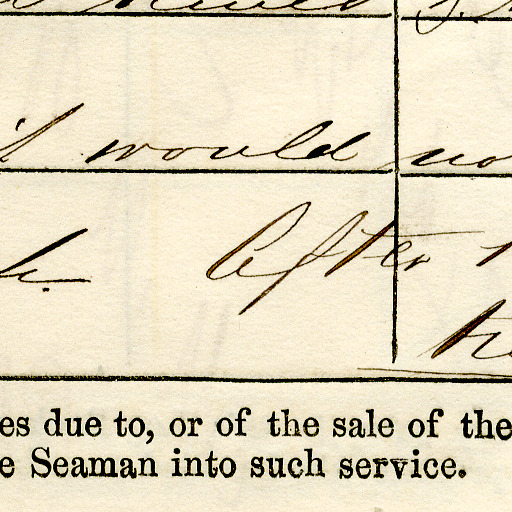 would no
After
es due to, or of the sale of the
e Seaman into such service.